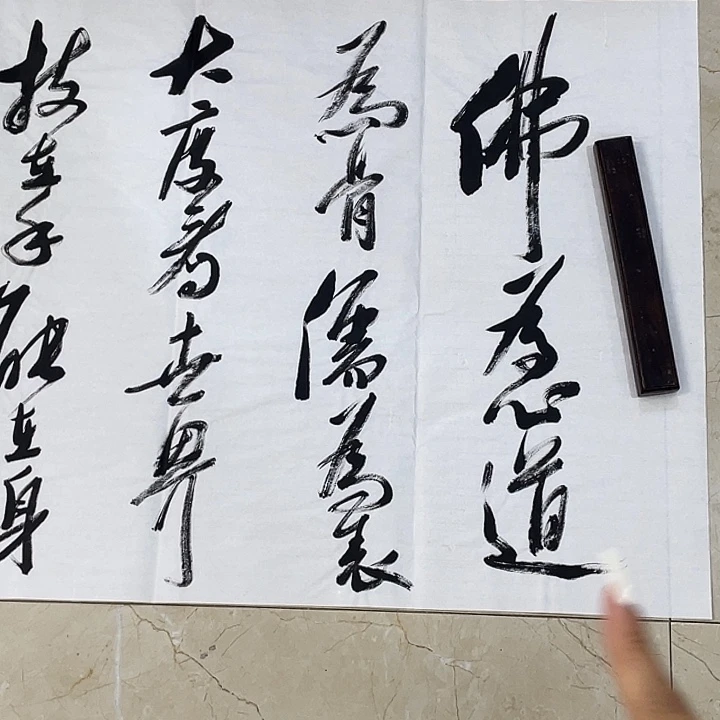 佛為心道
為骨儒為表
大度看世界
技在手能在身